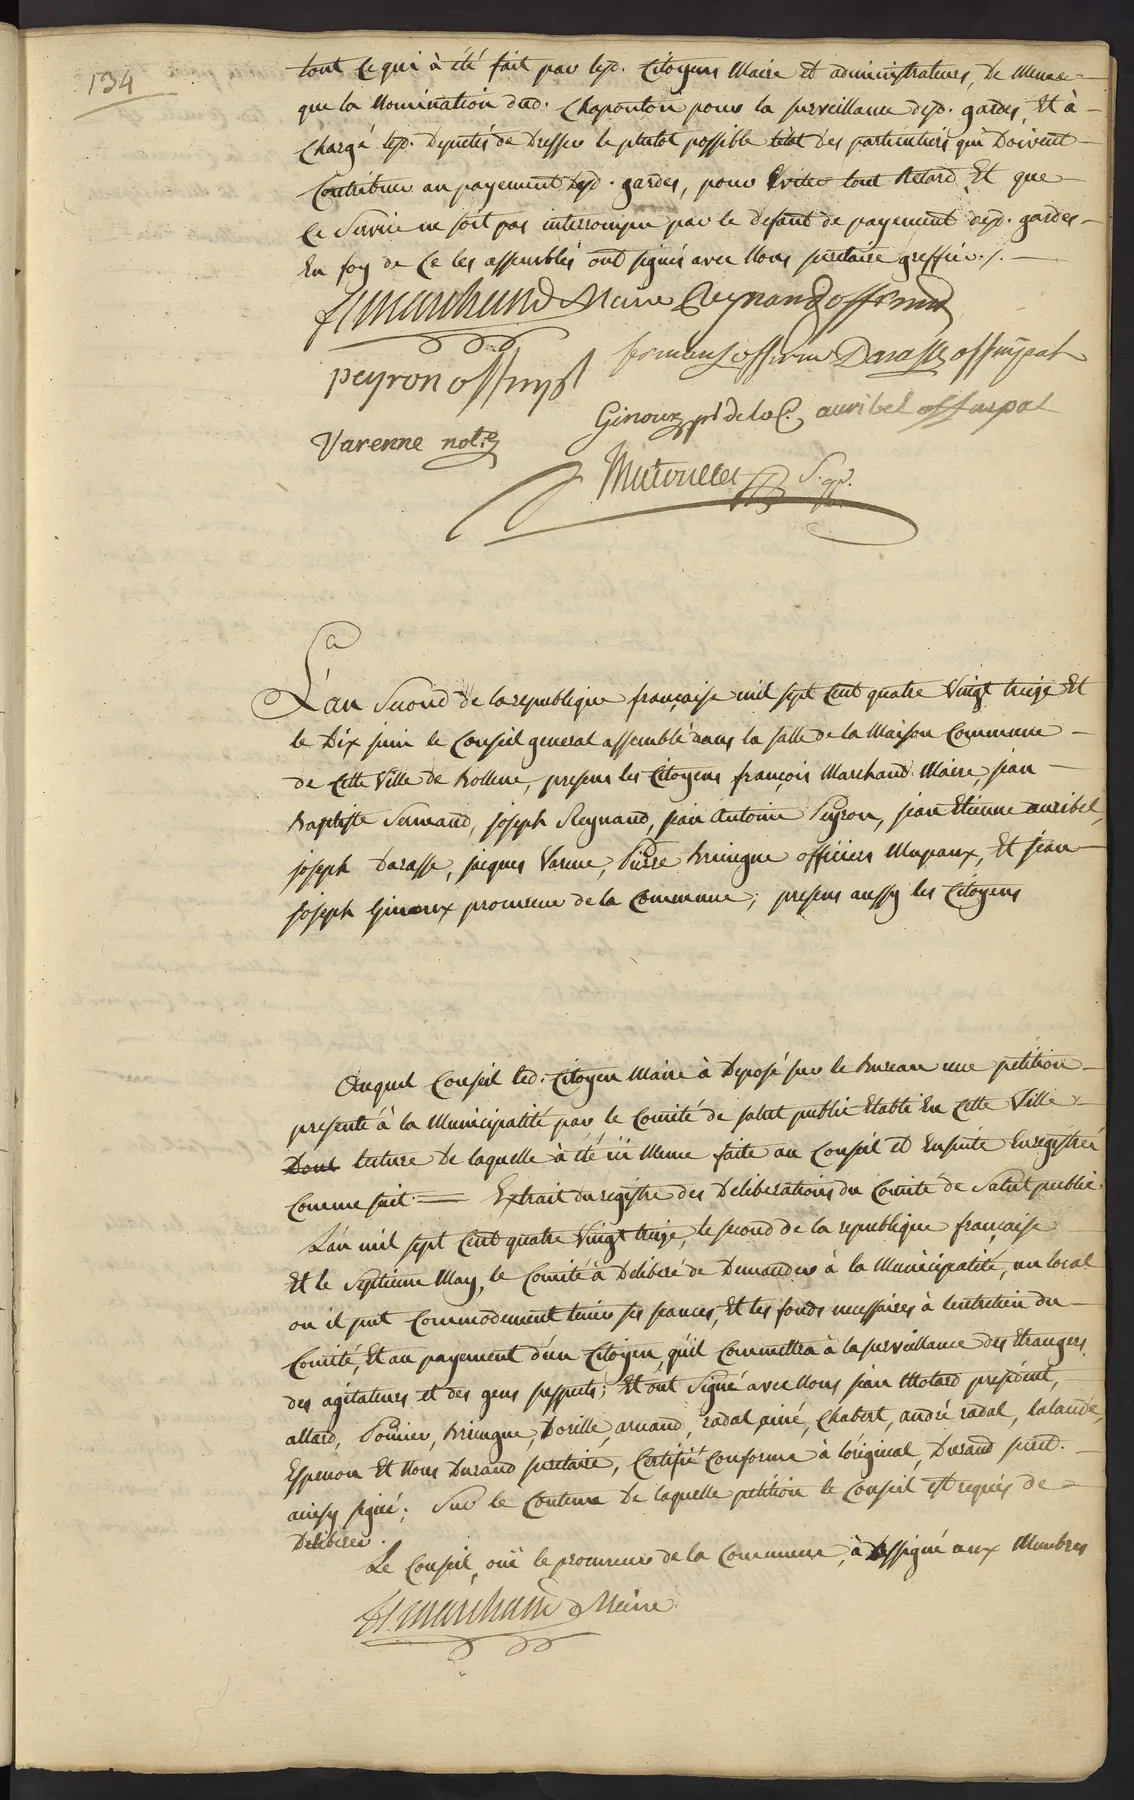 134
tout ce qui à été fait par lesd. Citoyens Maire et administrateurs, De Meme
que la Nomination dud. Chaponton pour la surveillance desd. gardes, Et à
Chargé lesd. Deputés de Dresser le plutot possible letat Des particuliers qui Doivent
Contribuer au payement desd. gardes, pour Eviter tout Retard Et que
Ce Service ne soit pas interrompu par le defaut de payement desd. gardes
En foy de Ce les assemblés ont signés avec Nous secretaire greffier ./.
fs marchand Maire Reynaud off mal
peyron off mpl Darasse off mpal
Ginoux pr de la C. auribel off mpal
Varenne not.e
S. gr.
L'an Second de la republique française mil sept Cent quatre Vingt treize Et
le Dix juin le Conseil general assemblé dans la salle de la Maison Commune
de Cette Ville de Bollene, presens les Citoyens françois Marchand Maire, jean
Baptiste , joseph Reynaud, jean Antoine Peyron, jean Etienne auribel,
joseph Darasse, jacques , Pierre Bringue officiers Mupaux, Et jean
joseph Ginoux procureur de la Commune; presens aussy les Citoyens
Auquel Conseil led. Citoyen Maire à Deposé sur le Bureau une petition
presenté à la Municipalité par le Comité de salut public Etabli En Cette Ville
Dont lecture De laquelle à été ici Meme faite au Conseil et Ensuite Enregistréé
Comme suit. = Extrait du registre des Deliberations du Comité de Salut public.
L'an mil sept Cent quatre Vingt treize, le second de la republique française
Et le Septieme May, le Comité à Deliberé de Demander à la Municipalité, un local
ou il put Commodement tenir ses seances, Et les fonds necessaires à lentretien du
Comité, Et au payement d'un Citoyen, qu'il Commettra à la surveillance des Etrangers
des agitateurs et des gens suspects; Et ont Signé avec Nous jean Motard president,
allard, Pounier, Bringue, Dorille, arnaud, radal ainé, Chabert, andré radal, lalande,
Espenon Et Nous Durand secretaire, Certifié Conforme à loriginal, Durand secret.
ainsy signé; Sur le Contenu De laquelle petition le Conseil est requis de
Deliberer.
Le Conseil, oui le procureur de la Commune, à assigné aux Membres
fs marchand Maire